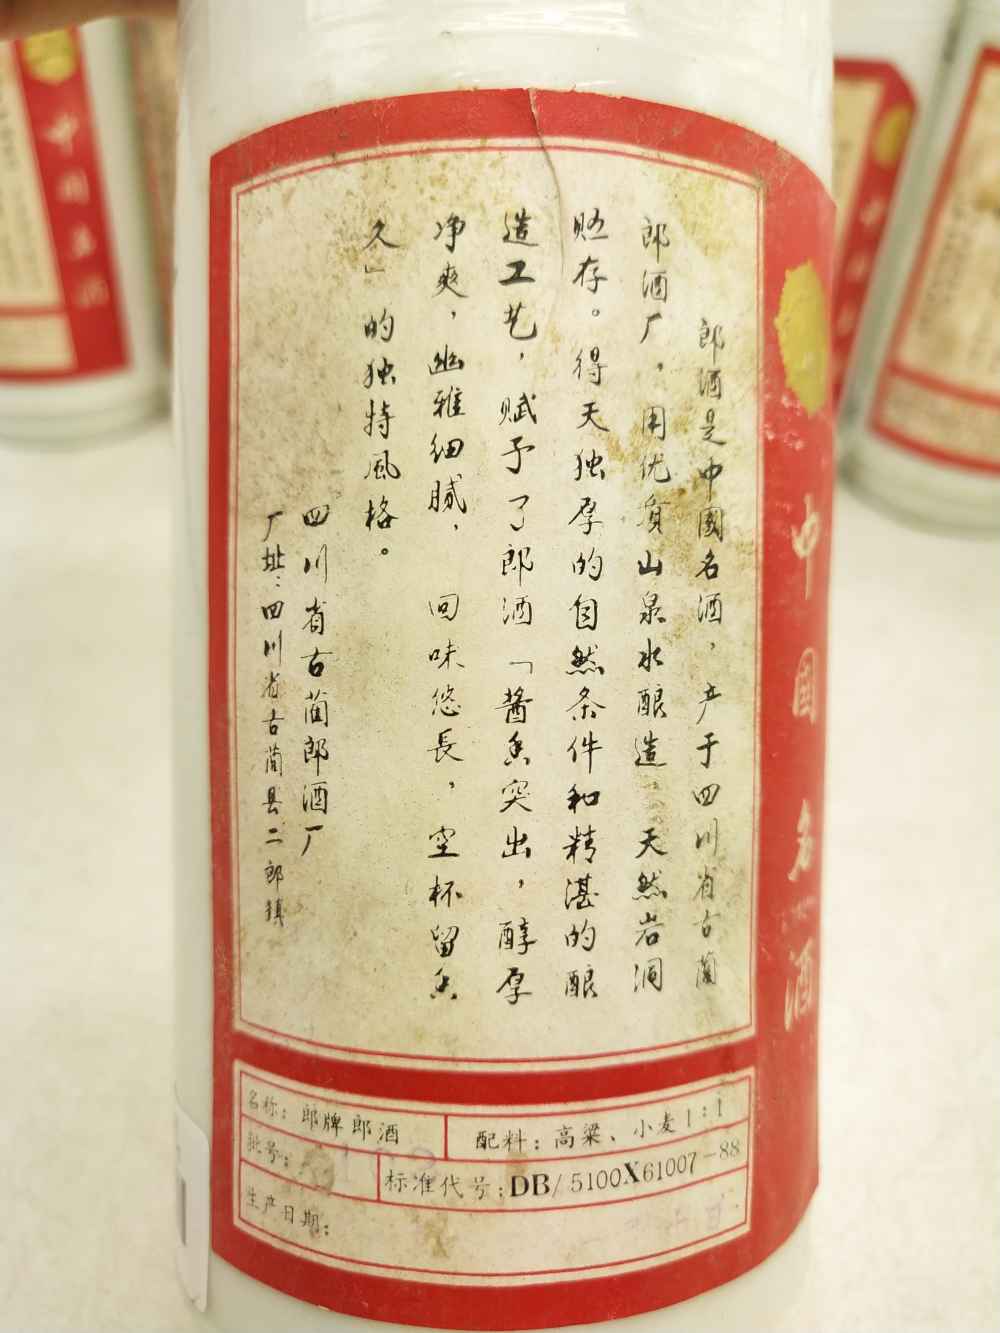 郎酒是中國名酒，产于四川省古蔺
郎酒厂，用优質山泉水酿造，天然岩洞
贮存。得天独厚的自然条件和精湛的酿
造工艺，赋予了郎酒「酱香突出，醇厚
净爽，幽雅细腻，回味悠長，空杯留香
久」的独特風格。
四川省古蔺郎酒厂
厂址：四川省古蔺县二郎镇
中國名酒
名称：郎牌郎酒
配料：高粱、小麦1：1
批号：
标准代号：DB/5100X61007-88
生产日期：
中國名酒